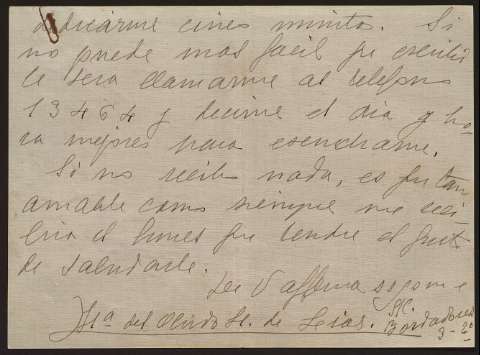 dedicarme cinco minutos. Si
no puede mas facil que escribir
le sera llamarme al telefono
13464 y decirme el dia y ho-
ra mejores para escucharme.
Si no recibo nada, es que tan
amable como siempre me reci-
bira el lunes que tendre el gusto
de saludarle.
De V affma s.s. q e m e
Mª del de
S/C. Bordadores
9-2º